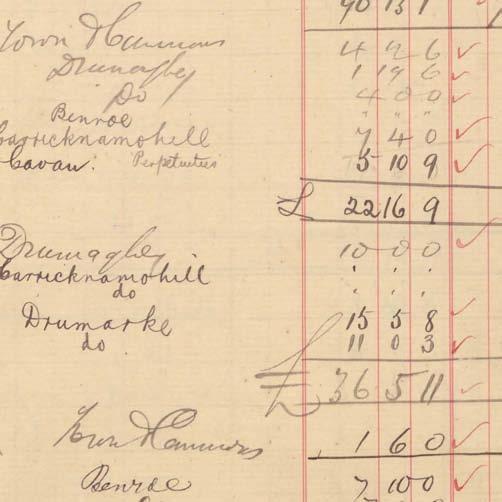 Town 4 2 6
Drumagbey 1 19 6
Do 4 0 0
Benroe " " "
Carricknamohill 7 4 0
Cavan. Perpetuities 5 10 9
£ 22 16 9
Drumagbey 10 0 0
Carricknamohill " " "
do " " "
Drumarke 15 5 8
do 11 0 3
£ 36 5 11
Town 1 6 0
Benroe 7 10 0